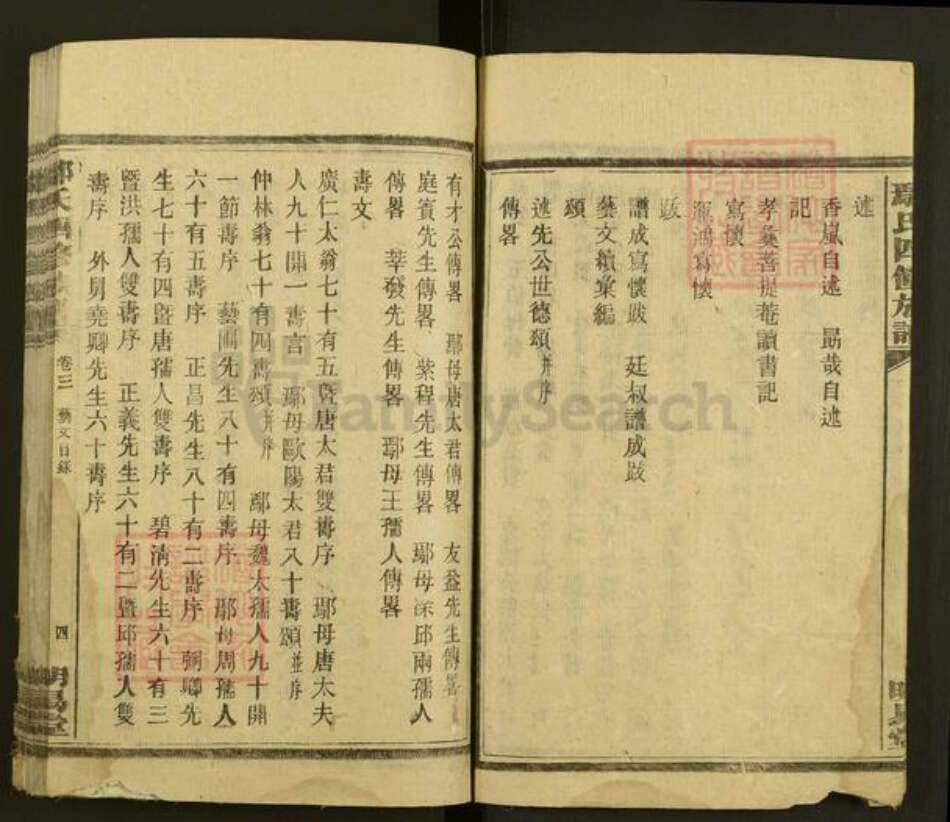 鄢氏四修族譜
述
香嵐自述　勗哉自述
記
孝羲菩提菴讀書記
寫懷
澤鴻寫懷
跋
譜成寫懷跋　廷叔譜成跋
藝文續彙編
頌
述先公世德頌并序
傳畧
有才公傳畧　鄢母唐太君傳畧　友益先生傳畧
庭賓先生傳畧　紫程先生傳畧　鄢母涂邱兩孺人
傳畧　莘發先生傳畧　鄢母王孺人傳畧
壽文
廣仁太翁七十有五暨唐太君雙壽序　鄢母唐太夫
人九十開一壽言　鄢母歐陽太君八十壽頌並序
仲林翁七十有四壽頌并序　鄢母魏太孺人九十開
一節壽序　藝圃先生八十有四壽序　鄢母周孺人
六十有五壽序　正昌先生八十有二壽序　弼卿先
生七十有四暨唐孺人雙壽序　碧清先生六十有三
暨洪孺人雙壽序　正義先生六十有二暨邱孺人雙
壽序　外舅堯卿先生六十壽序
卷三　藝文目錄
四
FamilySearch